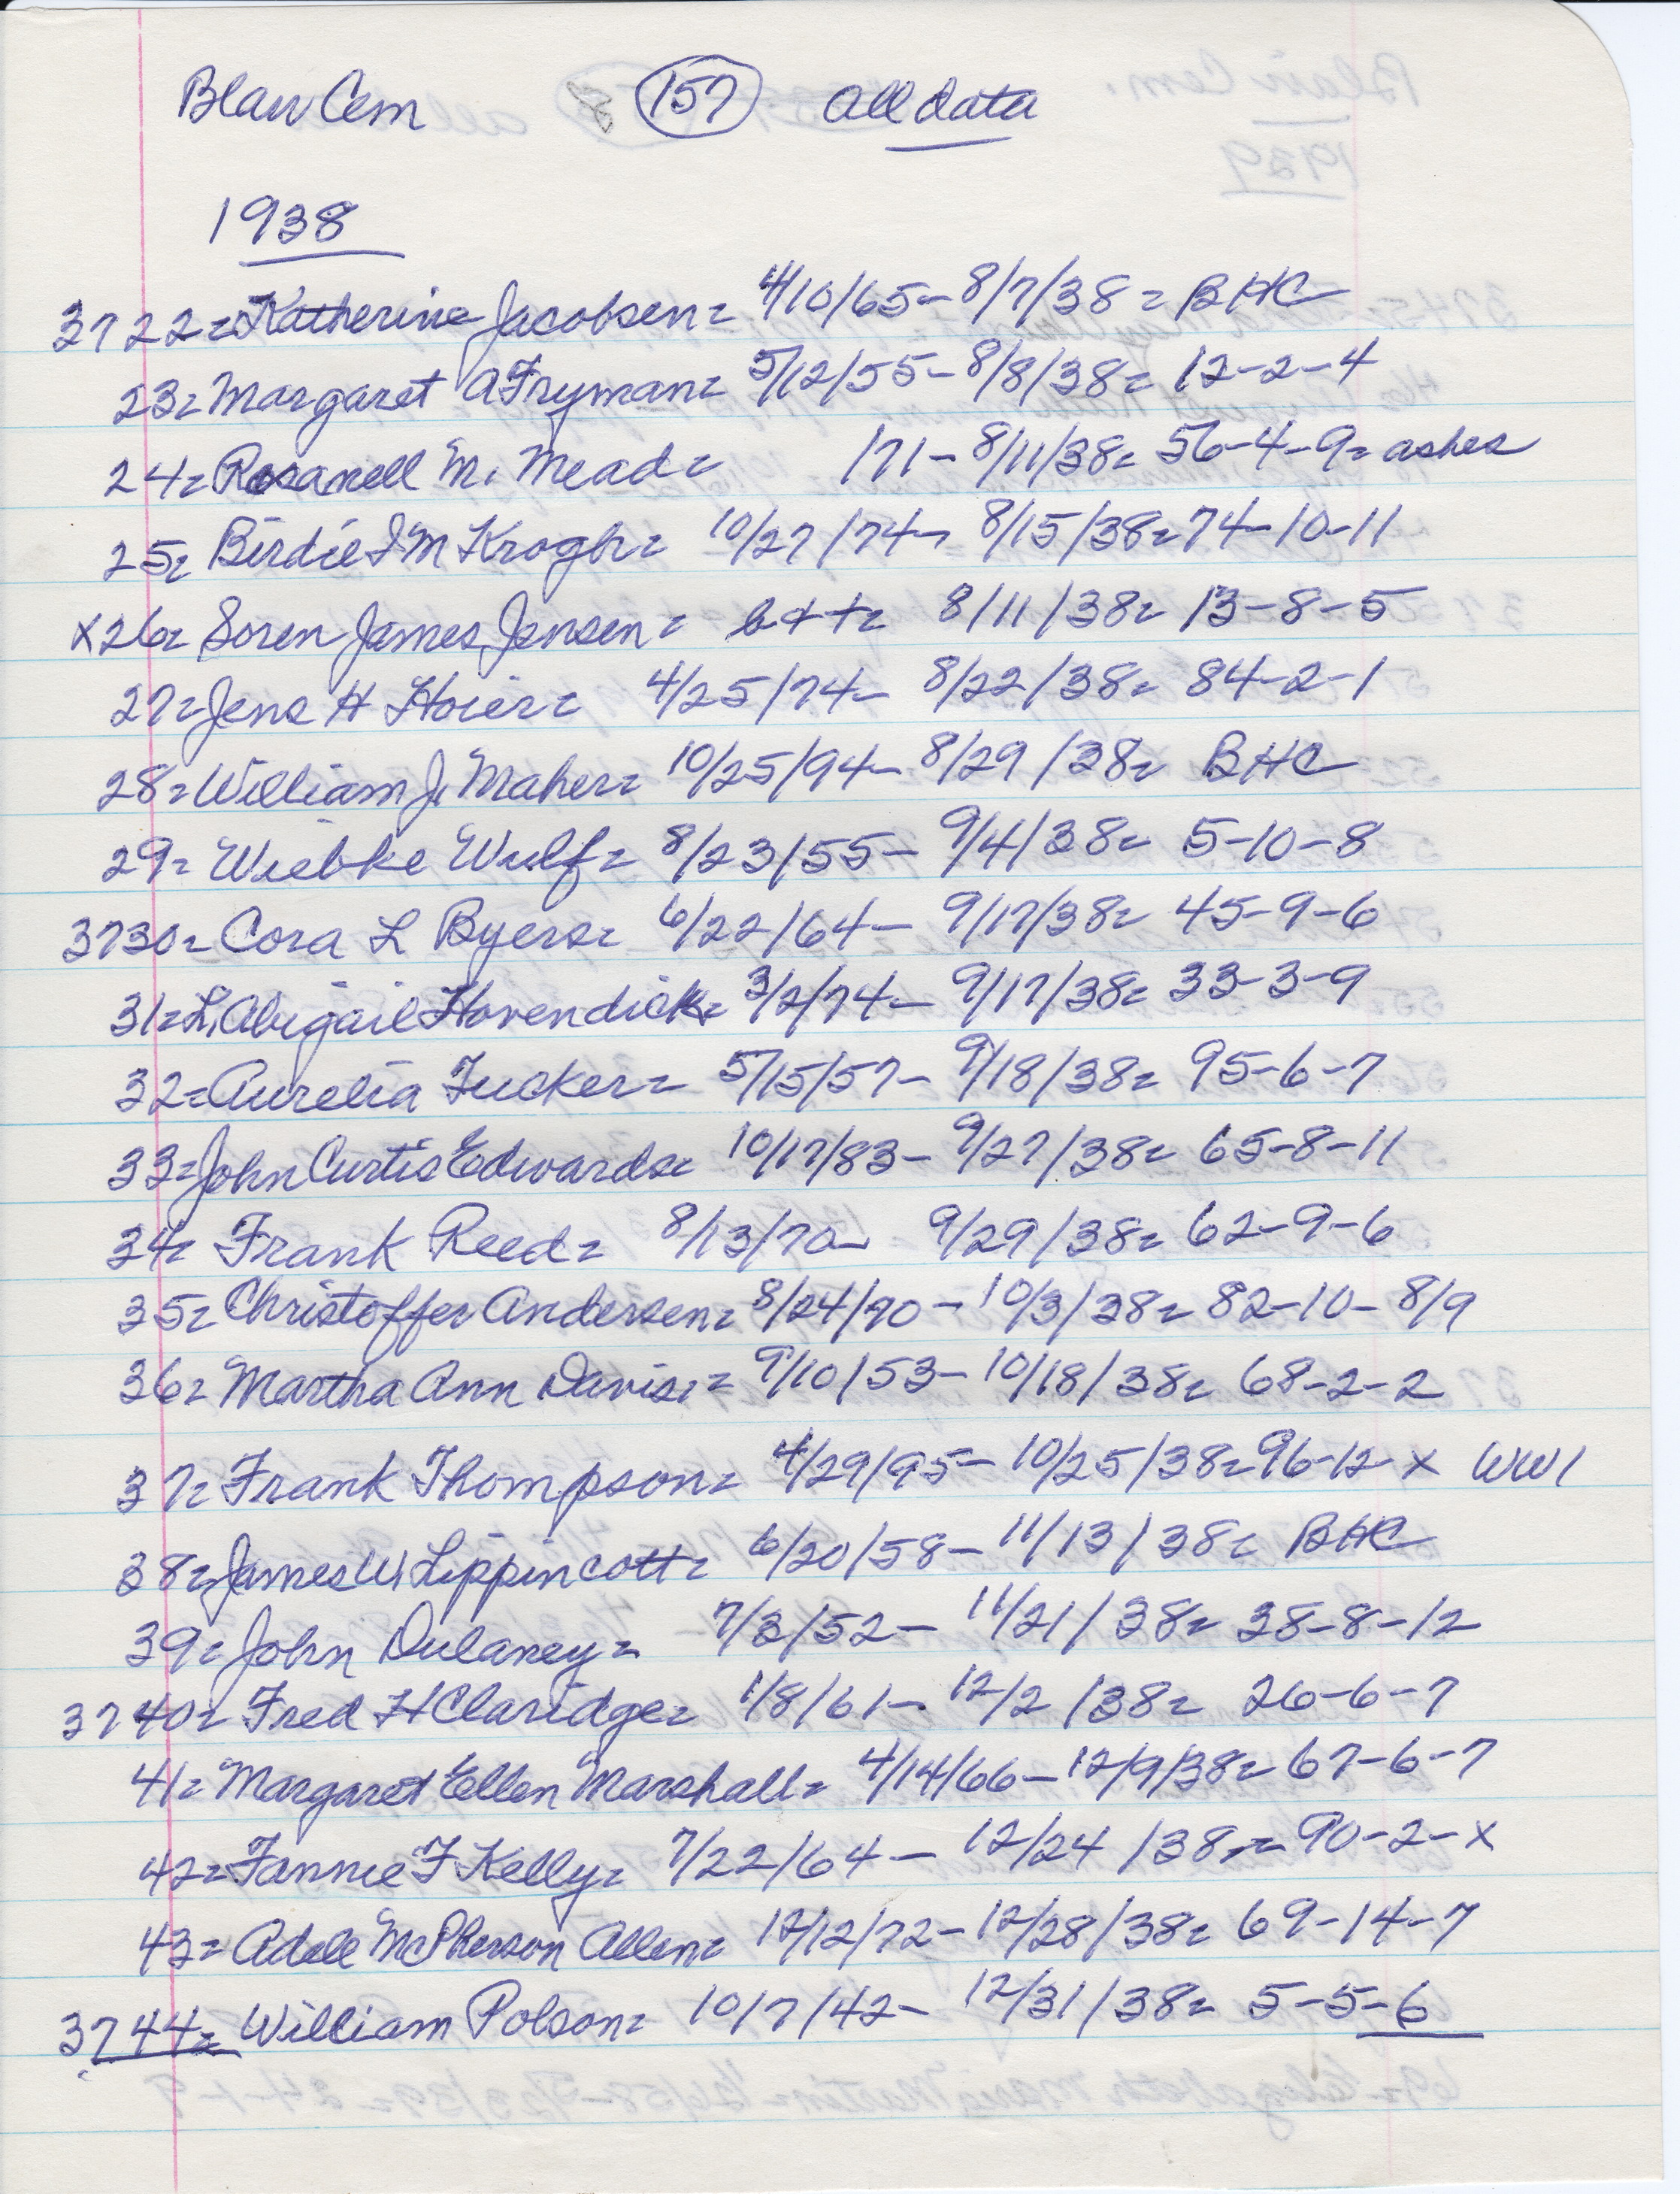 Blair Cem 157 all data
1938
3722= Katherine Jacobsen= 4/10/65- 8/7/38= BHC
23= Margaret A Fryman= 5/12/55- 8/8/38= 12-2-4
24= Rosanell M. Mead= 171- 8/11/38= 56-4-9= ashes
25= Birdie I M Krogh= 10/27/74- 8/15/38= 74-10-11
x26= Soren James Jensen= b++= 8/11/38= 13-8-5
27= Jens H Hoier= 4/25/74- 8/22/38= 84-2-1
28= William J. Maher= 10/25/94- 8/29/38= BHC
29= Wiebke Wulf= 8/23/55- 9/4/38= 5-10-8
3730= Cora L Byers= 6/22/64- 9/17/38= 45-9-6
31= L. Abigail Hovendick= 3/2/74- 9/17/38= 33-3-9
32= Aurelia Tucker= 5/15/57- 9/18/38= 95-6-7
33= John Curtis Edwards= 10/17/83- 9/27/38= 65-8-11
34= Frank Reed= 8/13/70- 9/29/38= 62-9-6
35= Christoffer Andersen= 8/24/70- 10/3/38= 82-10-8/9
36= Martha Ann Davis.= 9/10/53- 10/18/38= 68-2-2
37= Frank Thompson= 4/29/95- 10/25/38= 96-12-x WW1
38= James W. Lippincott= 6/20/58- 11/13/38= BHC
39= John Dulaney= 7/3/52- 11/21/38= 38-8-12
3740= Fred H Claridge= 1/8/61- 12/2/38= 26-6-7
41= Margaret Ellen Marshall= 4/14/66- 12/9/38= 67-6-7
42= Fannie F Kelly= 7/22/64- 12/24/38= 90-2-x
43= Adele McPherson Allen= 12/12/72- 12/28/38= 69-14-7
3744= William Polson= 10/7/42- 12/31/38= 5-5-6